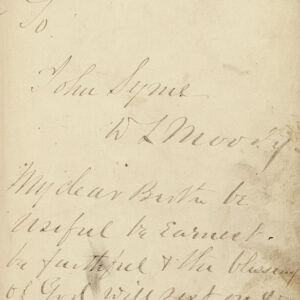 To
John Syme
D L Moody
My dear Broth be
useful be Earnest.
be faithful & the blessing
of God will rest on